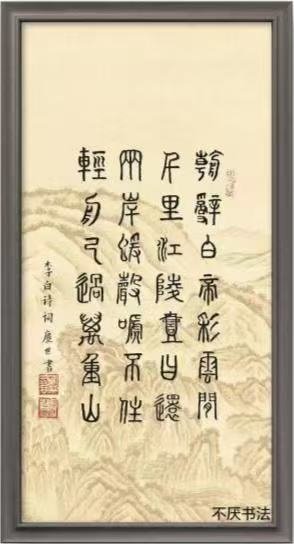 朝辭白帝彩雲間
千里江陵壹日還
兩岸猨聲嗁不住
輕舟已過萬重山
李白詩詞 世書
不厌书法